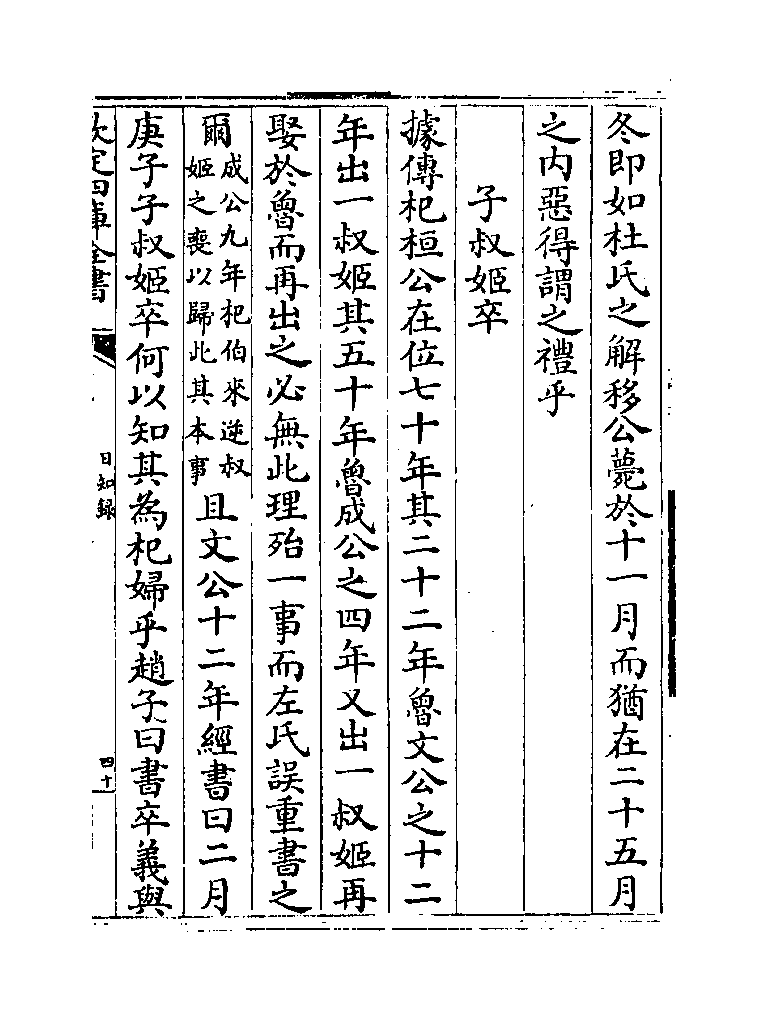 冬即如杜氏之解移公薨於十一月而猶在二十五月
之内惡得謂之禮乎
子叔姬卒
據傳杞桓公在位七十年其二十二年魯文公之十二
年出一叔姬其五十年魯成公之四年又出一叔姬再
娶於魯而再出之必無此理殆一事而左氏誤重書之
爾成公九年杞伯來逆叔姬之喪以歸此其本事且文公十二年經書曰二月
庚子子叔姬卒何以知其為杞婦乎趙子曰書卒義與
欽定四庫全書
日知錄
四十